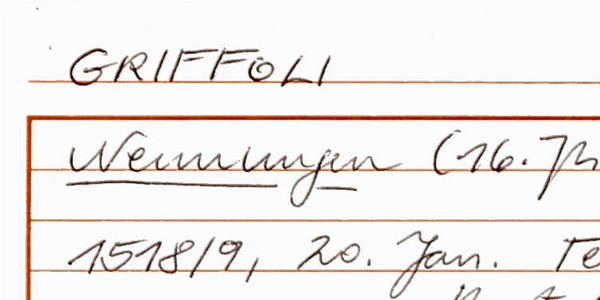 GRIFFOLI
Nennungen (16. Jh
1518/9, 20. Jan. Te